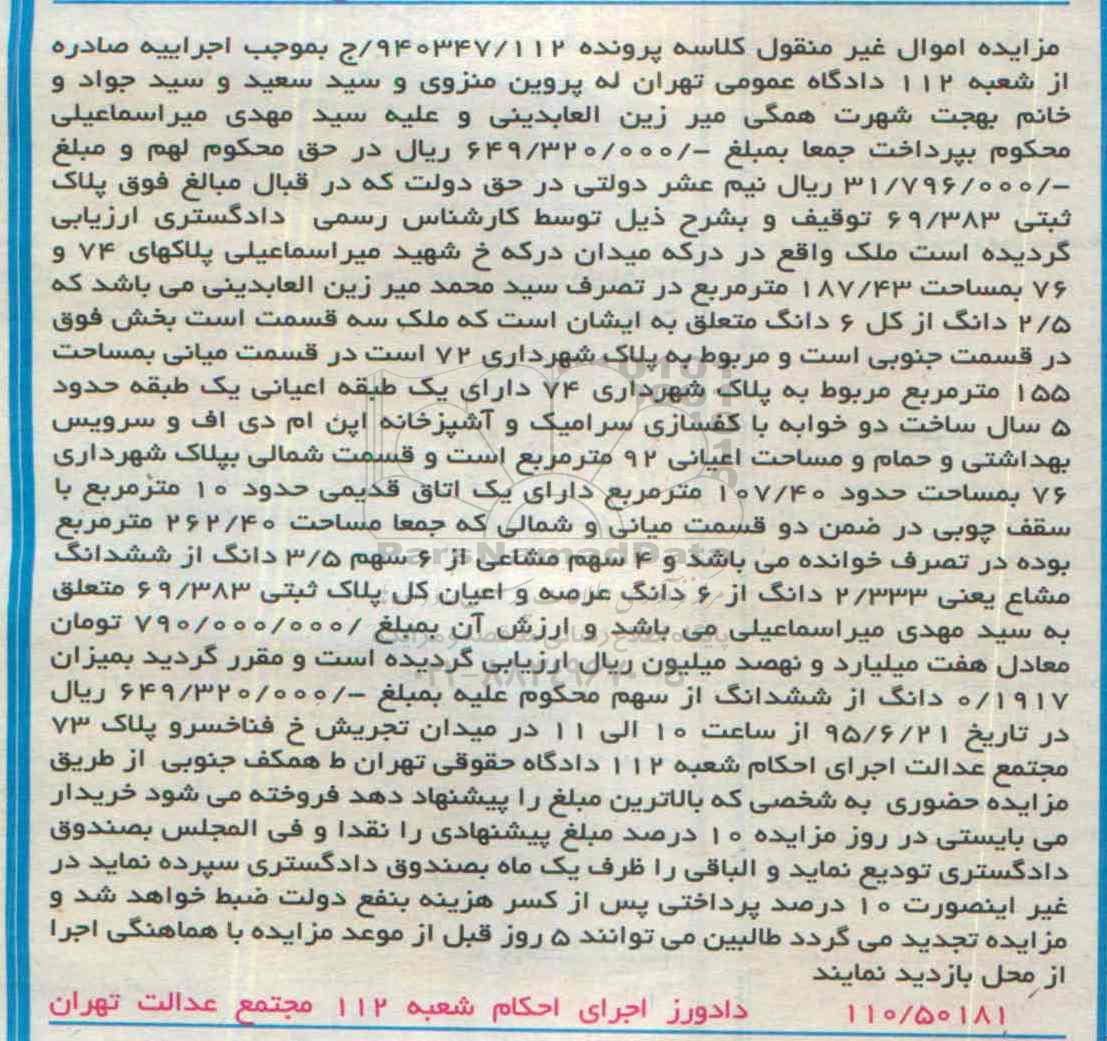 مزایده اموال غیر منقول کلاسه پرونده ۹۴۰۳۴۷/۱۱۲/ج بموجب اجراییه صادره
از شعبه ۱۱۲ دادگاه عمومی تهران له پروین منزوی و سید سعید و سید جواد و
خانم بهجت شهرت همگی میر زین العابدینی و علیه سید مهدی میراسماعیلی
محکوم بپرداخت جمعا بمبلغ -/۶۴۹/۳۲۰/۰۰۰ ریال در حق محکوم لهم و مبلغ
-/۳۱/۷۹۶/۰۰۰ ریال نیم عشر دولتی در حق دولت که در قبال مبالغ فوق پلاک
ثبتی ۶۹/۳۸۳ توقیف و بشرح ذیل توسط کارشناس رسمی دادگستری ارزیابی
گردیده است ملک واقع در درکه میدان درکه خ شهید میراسماعیلی پلاکهای ۷۴ و
۷۶ بمساحت ۱۸۷/۴۳ مترمربع در تصرف سید محمد میر زین العابدینی می باشد که
۲/۵ دانگ از کل ۶ دانگ متعلق به ایشان است که ملک سه قسمت است بخش فوق
در قسمت جنوبی است و مربوط به پلاک شهرداری ۷۲ است در قسمت میانی بمساحت
۱۵۵ مترمربع مربوط به پلاک شهرداری ۷۴ دارای یک طبقه اعیانی یک طبقه حدود
۵ سال ساخت دو خوابه با کفسازی سرامیک و آشپزخانه اپن ام دی اف و سرویس
بهداشتی و حمام و مساحت اعیانی ۹۲ مترمربع است و قسمت شمالی بپلاک شهرداری
۷۶ بمساحت حدود ۱۰۷/۴۰ مترمربع دارای یک اتاق قدیمی حدود ۱۰ مترمربع با
سقف چوبی در ضمن دو قسمت میانی و شمالی که جمعا مساحت ۲۶۲/۴۰ مترمربع
بوده در تصرف خوانده می باشد و ۴ سهم مشاعی از ۶ سهم ۳/۵ دانگ از ششدانگ
ParsNamadData
مشاع یعنی ۲/۳۳۳ دانگ از ۶ دانگ عرصه و اعیان کل پلاک ثبتی ۶۹/۳۸۳ متعلق
به سید مهدی میراسماعیلی می باشد و ارزش آن بمبلغ /۷۹۰/۰۰۰/۰۰۰ تومان
معادل هفت میلیارد و نهصد میلیون ریال ارزیابی گردیده است و مقرر گردید بمیزان
۰/۱۹۱۷ دانگ از ششدانگ از سهم محکوم علیه بمبلغ -/۶۴۹/۳۲۰/۰۰۰ ریال
در تاریخ ۹۵/۶/۲۱ از ساعت ۱۰ الی ۱۱ در میدان تجریش خ فناخسرو پلاک ۷۳
مجتمع عدالت اجرای احکام شعبه ۱۱۲ دادگاه حقوقی تهران ط همکف جنوبی از طریق
مزایده حضوری به شخصی که بالاترین مبلغ را پیشنهاد دهد فروخته می شود خریدار
می بایستی در روز مزایده ۱۰ درصد مبلغ پیشنهادی را نقدا و فی المجلس بصندوق
دادگستری تودیع نماید و الباقی را ظرف یک ماه بصندوق دادگستری سپرده نماید در
غیر اینصورت ۱۰ درصد پرداختی پس از کسر هزینه بنفع دولت ضبط خواهد شد و
مزایده تجدید می گردد طالبین می توانند ۵ روز قبل از موعد مزایده با هماهنگی اجرا
از محل بازدید نمایند
۱۱۰/۵۰۱۸۱ دادورز اجرای احکام شعبه ۱۱۲ مجتمع عدالت تهران